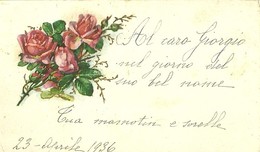 Al caro Giorgio
nel giorno del
suo bel nome
Tua mamotin e sorelle
23 - Aprile 1936